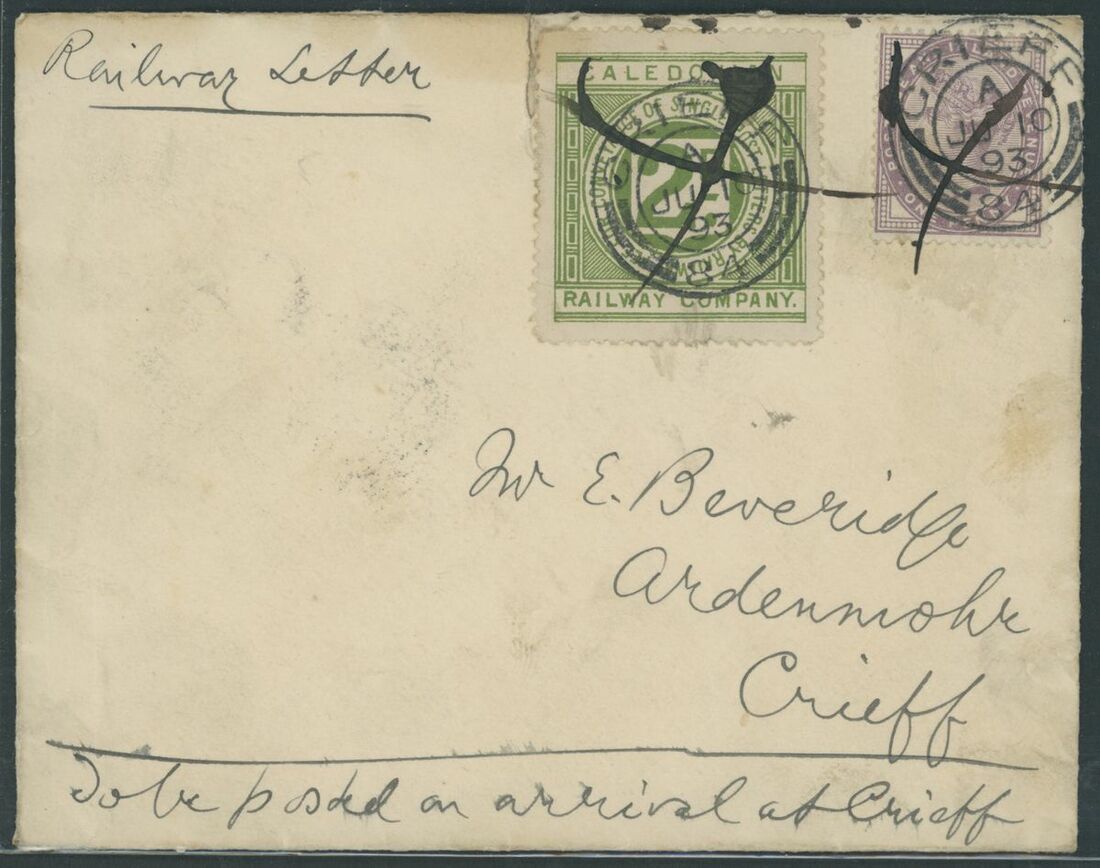 Railway Letter
CALEDONIAN
2D
RAILWAY COMPANY.
CRIEFF
A
JU 10
93
84
CRIEFF
A
JU 10
93
84
Mr E. Beveridge
Ardenmohr
Crieff
To be posted on arrival at Crieff